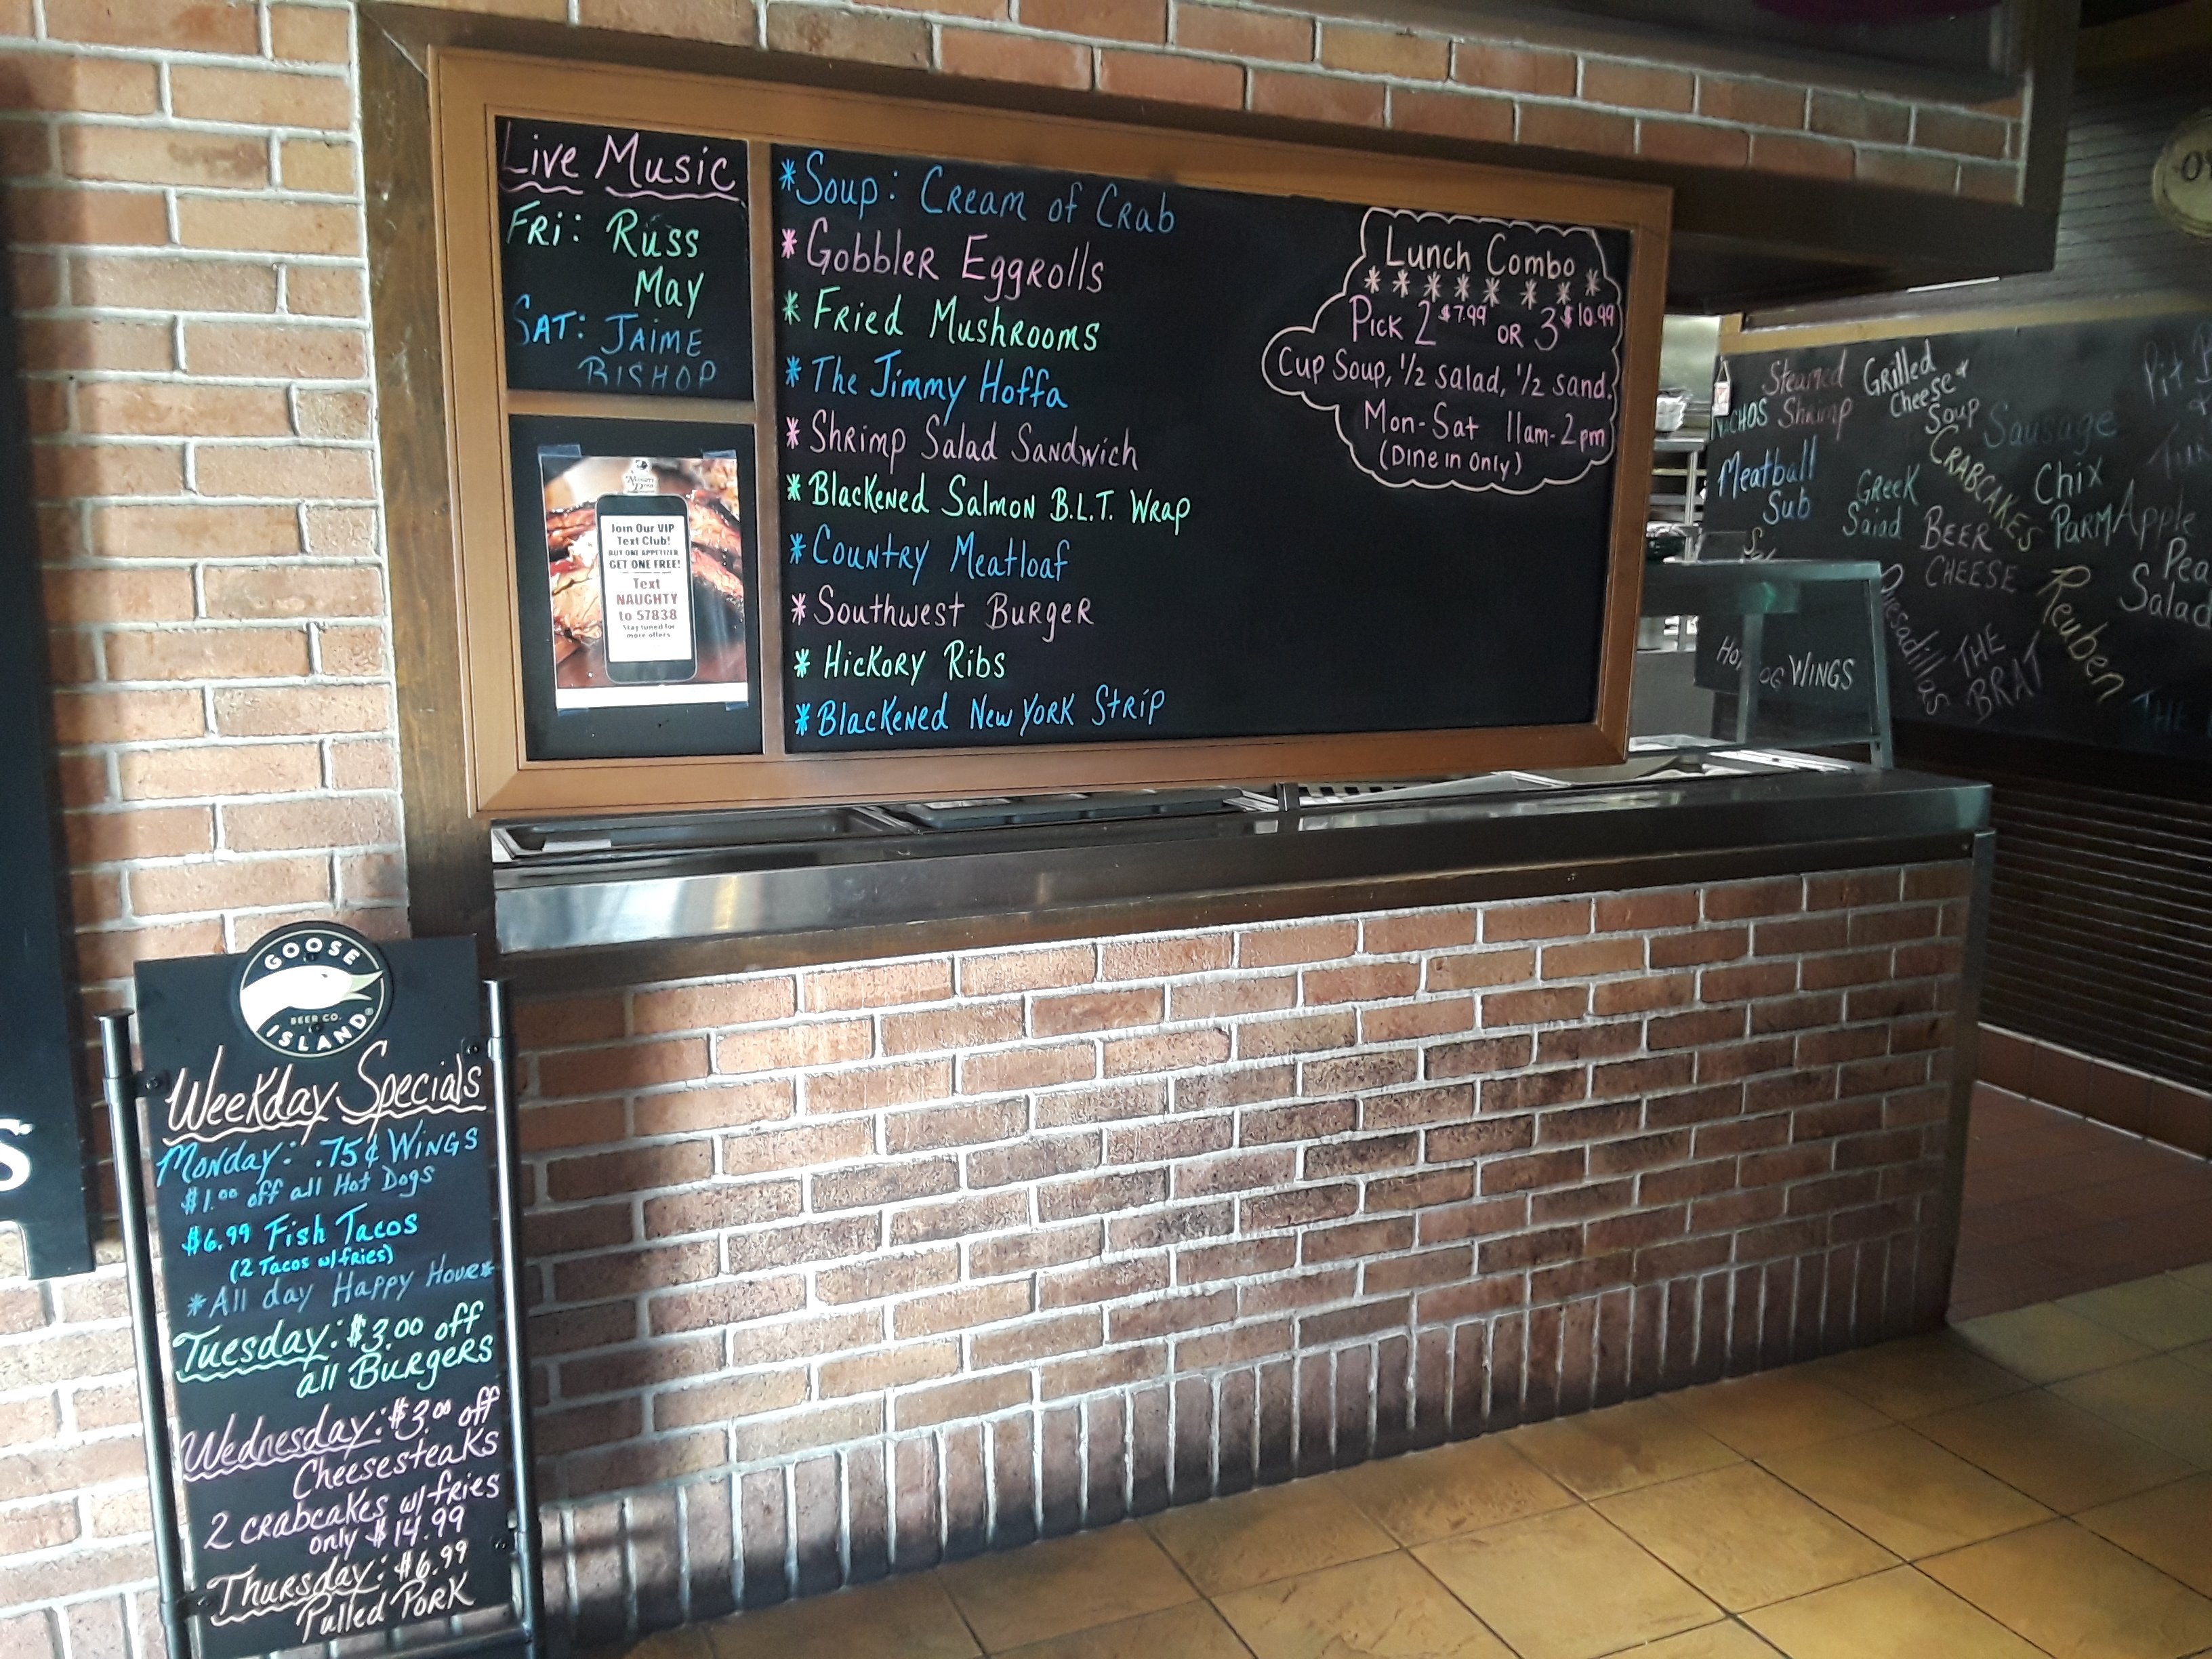 Live Music
Fri: Russ
May
Sat: Jaime
Bishop
Join Our VIP
Text Club!
BUY ONE APPETIZER
GET ONE FREE!
Text
NAUGHTY
to 57838
Stay tuned for
more offers
*Soup: Cream of Crab
*Gobbler Eggrolls
*Fried Mushrooms
*The Jimmy Hoffa
*Shrimp Salad Sandwich
*Blackened Salmon B.L.T. Wrap
*Country Meatloaf
*Southwest Burger
*Hickory Ribs
*Blackened New York Strip
Lunch Combo
*******
Pick 2 $7.99 or 3 $10.99
Cup Soup, 1/2 salad, 1/2 sand.
Mon-Sat 11am-2pm
(Dine in only)
Steamed
Shrimp
Grilled
Cheese &
Soup
Sausage
Meatball
Sub
Greek
Salad
CRABCAKES
Chix
Parm
Apple
Salad
BEER
CHEESE
Quesadillas
THE
BRAT
Reuben
WINGS
THE
S
GOOSE
ISLAND®
BEER CO.
Weekday Specials
Monday: .75¢ Wings
$1.00 off all Hot Dogs
$6.99 Fish Tacos
(2 Tacos w/fries)
*All day Happy Hour*
Tuesday: $3.00 off
all Burgers
Wednesday: $3.00 off
Cheesesteaks
2 crabcakes w/fries
only $14.99
Thursday: $6.99
Pulled Pork